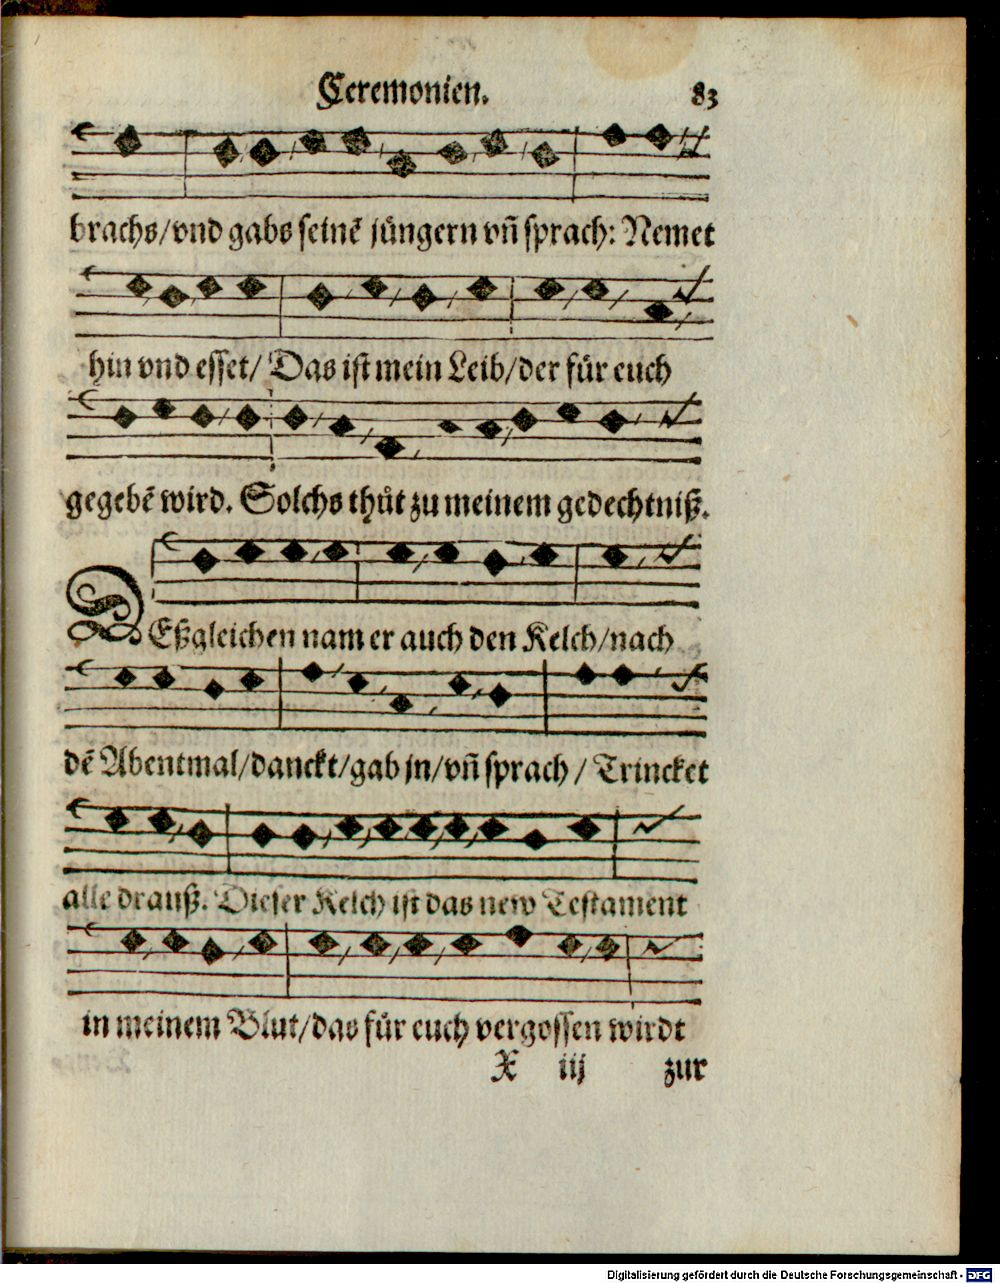 Ceremonien. 83
brachs/vnd gabs seinẽ jůngern vñ sprach: Nemet
hin vnd esset/ Das ist mein Leib/der fůr euch
gegebẽ wird. Solchs thůt zu meinem gedechtniß.
DEßgleichen nam er auch den Kelch/nach
dẽ Abentmal/danckt/gab jn/vñ sprach / Trincket
alle drauß. Dieser Kelch ist das new Testament
in meinem Blut/das fůr euch vergossen wirdt
X iij zur
Digitalisierung gefördert durch die Deutsche Forschungsgemeinschaft - DFG